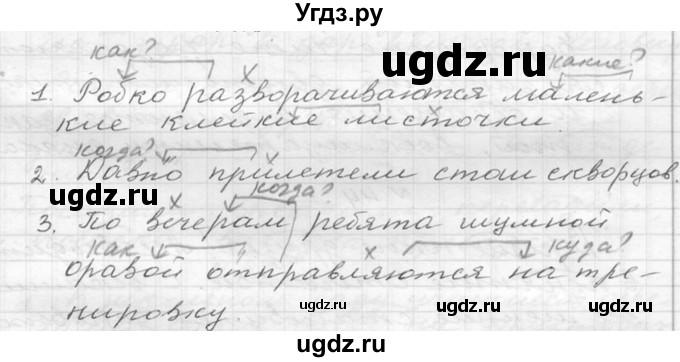 Угдз.ру
как? какие?
ugdz.ru
1. Робко разворачиваются малень-
кие клейкие листочки.
когда?
2. Давно прилетели стаи скворцов.
ugdz.ru когда? ugdz.ru
3. По вечерам ребята шумной
как куда?
оравой отправляются на тре-
нировку. ugdz.ru ugdz.ru
ugdz.ru